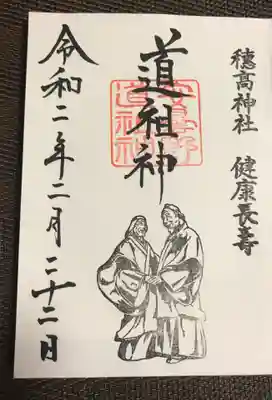 穂高神社 健康長寿
道祖神
安曇野
道祖神
令和二年二月二十二日